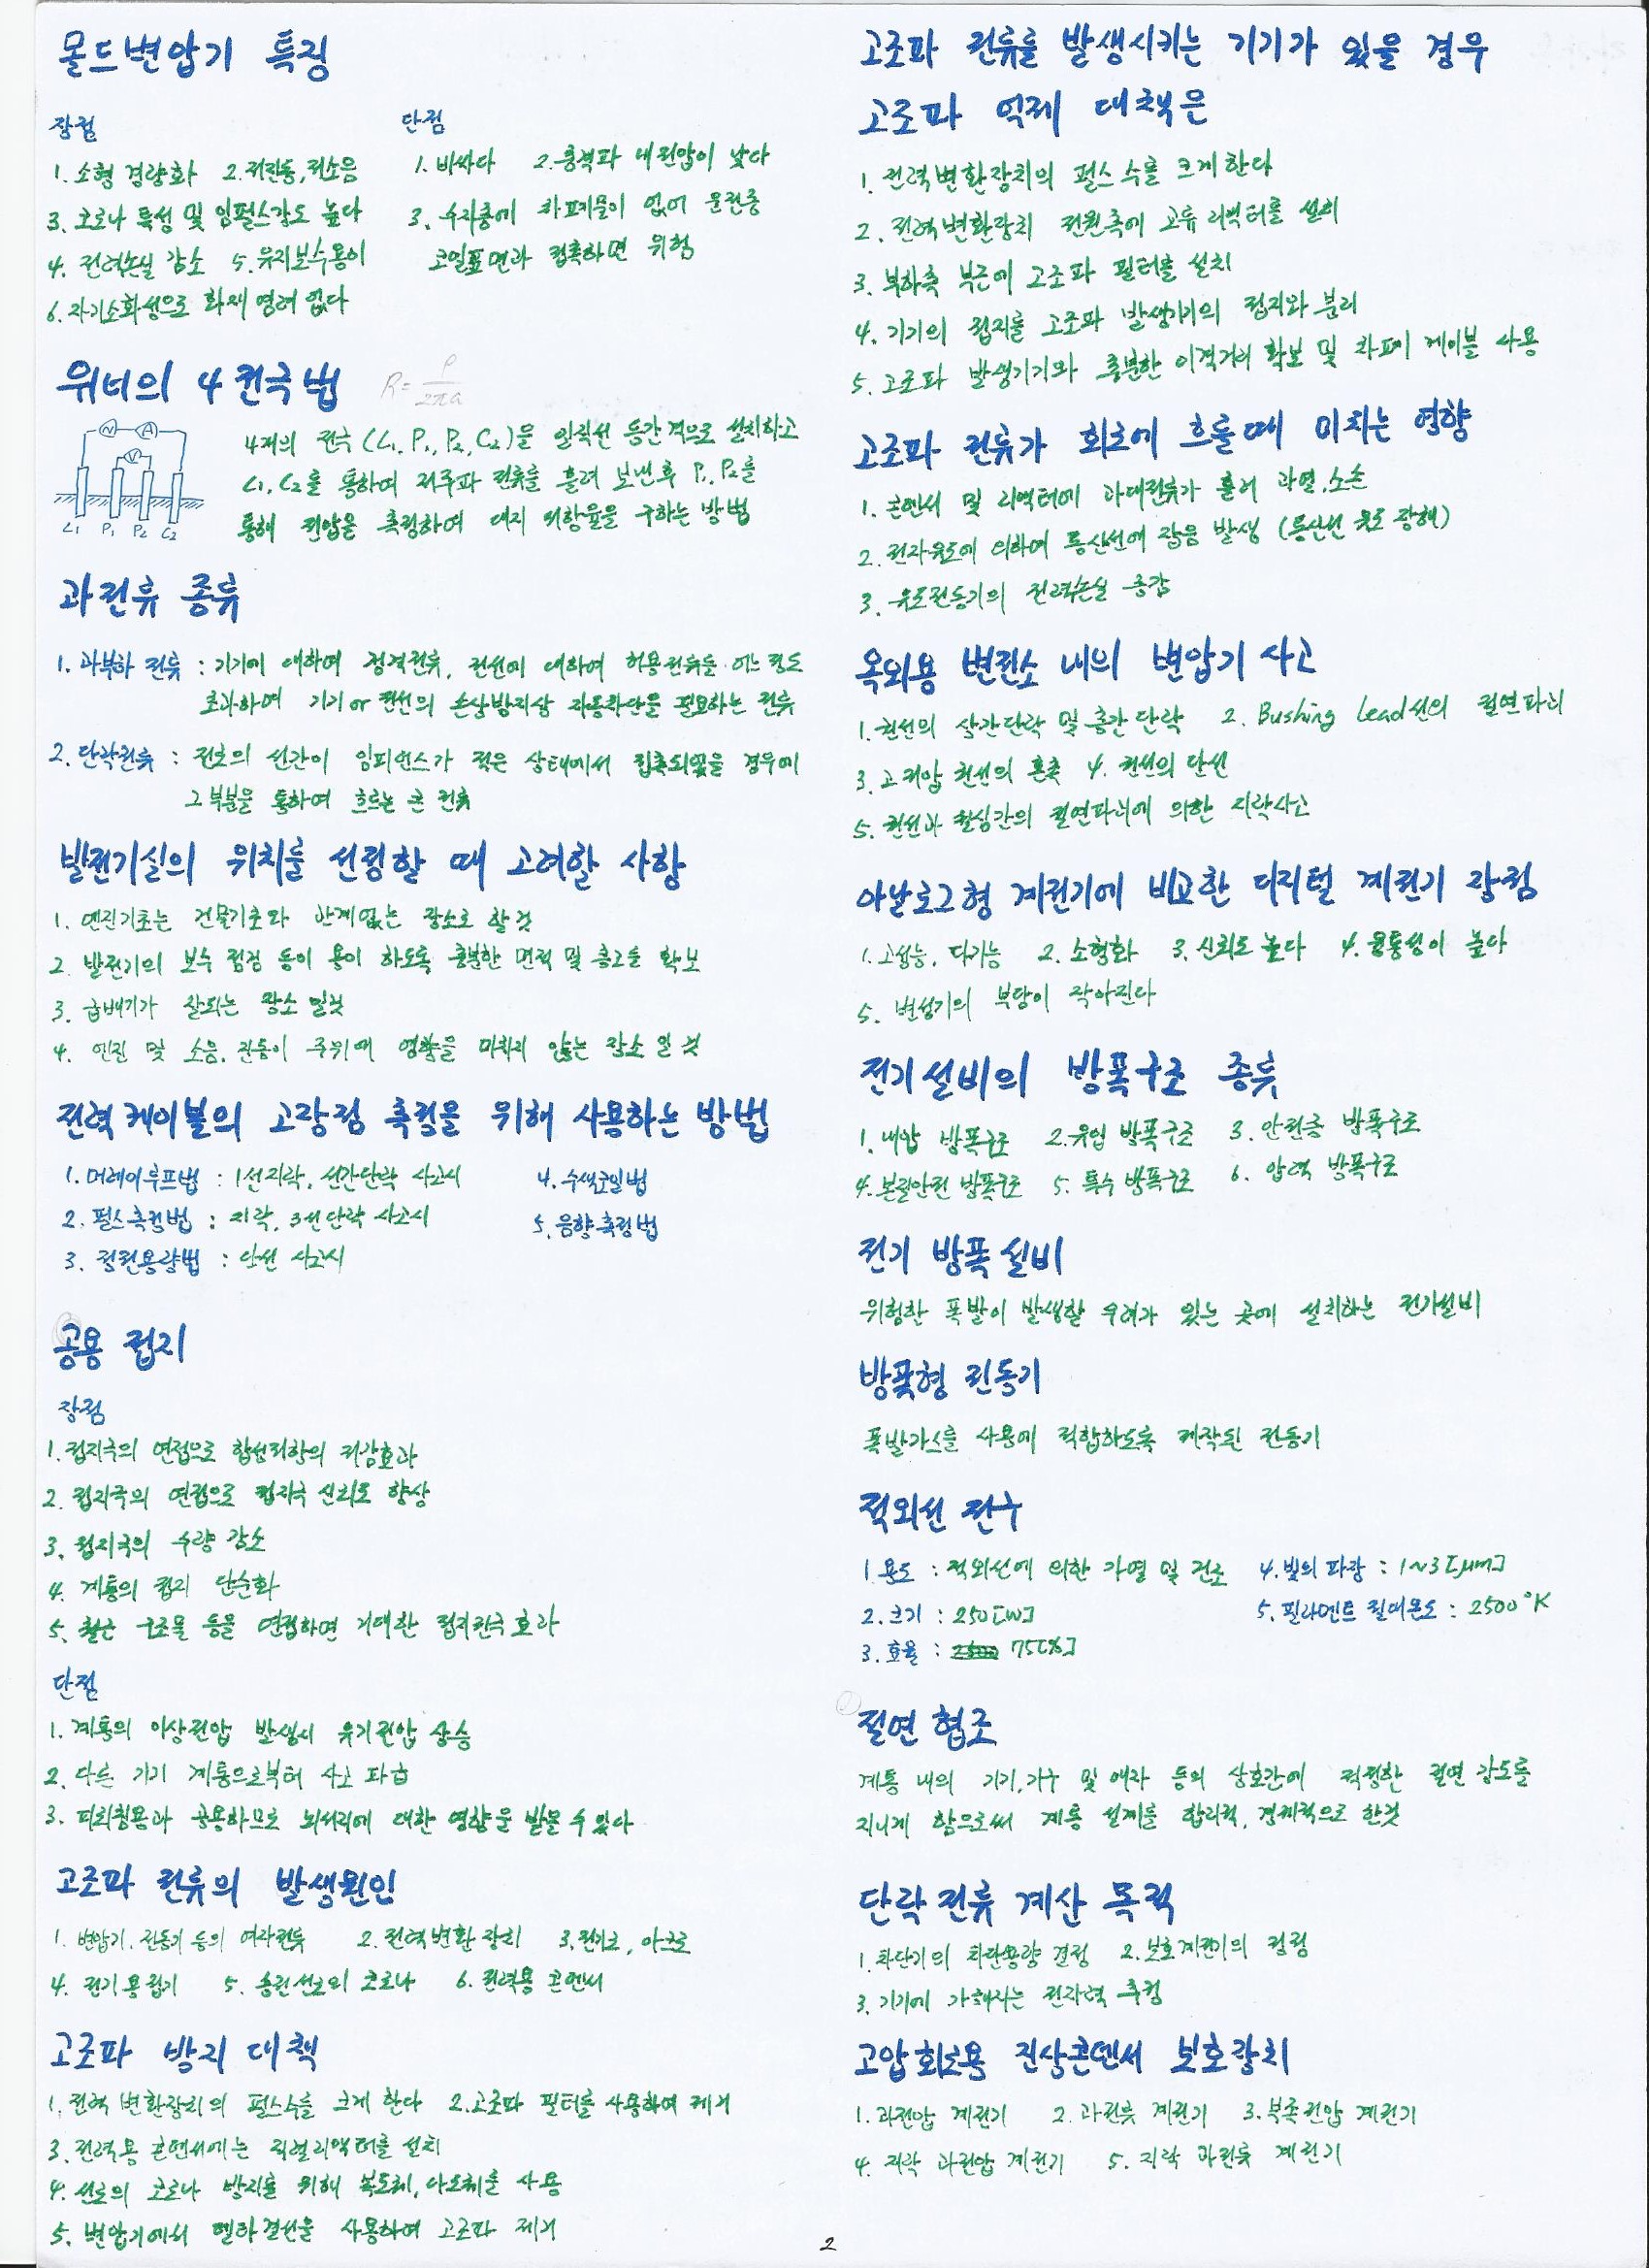 몰드변압기 특징
장점
1. 소형 경량화 2. 저진동, 저소음
3. 코로나 특성 및 임펄스강도 높다
4. 전력손실 감소 5. 유지보수용이
6. 자기소화성으로 화재 염려 없다
단점
1. 비싸다 2. 충격파 내전압이 낮다
3. 수지층에 차폐물이 없어 운전중
코일표면과 접촉하면 위험
위너의 4전극법 R=ρ/2πa
4개의 전극(C₁, P₁, P₂, C₂)을 일직선 등간격으로 설치하고
C₁, C₂를 통하여 저주파 전류를 흘려 보낸후 P₁, P₂를
통해 전압을 측정하여 대지 저항율을 구하는 방법
N A
V
C₁ P₁ P₂ C₂
과전류 종류
1. 과부하 전류 : 기기에 대하여 정격전류, 전선에 대하여 허용전류를 어느 정도
초과하여 기기 or 전선의 손상방지상 자동차단을 필요하는 전류
2. 단락전류 : 전로의 선간이 임피던스가 적은 상태에서 접촉되었을 경우에
그 부분을 통하여 흐르는 큰 전류
발전기실의 위치를 선정할 때 고려할 사항
1. 엔진기초는 건물기초와 관계없는 장소로 할것
2. 발전기의 보수 점검 등이 용이 하도록 충분한 면적 및 층고를 확보
3. 급배기가 잘되는 장소 일것
4. 엔진 및 소음, 진동이 주위에 영향을 미치지 않는 장소 일 것
전력케이블의 고장점 측정을 위해 사용하는 방법
1. 머레이루프법 : 1선지락, 선간단락 사고시
2. 펄스측정법 : 지락, 3선단락 사고시
3. 정전용량법 : 단선 사고시
4. 수색코일법
5. 음향측정법
공용 접지
장점
1. 접지극의 연접으로 합성저항의 저감효과
2. 접지극의 연접으로 접지극 신뢰도 향상
3. 접지극의 수량 감소
4. 계통의 접지 단순화
5. 철근 구조물 등을 연접하면 거대한 접지전극 효과
단점
1. 계통의 이상전압 발생시 유기전압 상승
2. 다른 기기 계통으로부터 사고 파급
3. 피뢰침용과 공용하므로 뇌서지에 대한 영향을 받을 수 있다
고조파 전류의 발생원인
1. 변압기, 전동기 등의 여자전류 2. 전력변환 장치 3. 전기로, 아크로
4. 전기용접기 5. 송전선로의 코로나 6. 전력용 콘덴서
고조파 방지 대책
1. 전력 변환장치의 펄스수를 크게 한다 2. 고조파 필터를 사용하여 제거
3. 전력용 콘덴서에는 직렬리액터를 설치
4. 선로의 코로나 방지를 위해 복도체, 다도체를 사용
5. 변압기에서 델타결선을 사용하여 고조파 제거
고조파 전류를 발생시키는 기기가 있을 경우
고조파 억제 대책은
1. 전력변환장치의 펄스 수를 크게 한다
2. 전력변환장치 전원측에 교류 리액터를 설치
3. 부하측 부근에 고조파 필터를 설치
4. 기기의 접지를 고조파 발생기기의 접지와 분리
5. 고조파 발생기기와 충분한 이격거리 확보 및 차폐 케이블 사용
고조파 전류가 회로에 흐를때 미치는 영향
1. 콘덴서 및 리액터에 과대전류가 흘러 과열, 소손
2. 전자유도에 의하여 통신선에 잡음 발생 (통신선 유도 장해)
3. 유도전동기의 전력손실 증감
옥외용 변전소 내의 변압기 사고
1. 권선의 상간단락 및 층간 단락 2. Bushing Lead선의 절연파괴
3. 고저압 권선의 혼촉 4. 권선의 단선
5. 권선과 철심간의 절연파괴에 의한 지락사고
아날로그형 계전기에 비교한 디지털 계전기 장점
1. 고성능, 다기능 2. 소형화 3. 신뢰도 높다 4. 융통성이 높다
5. 변성기의 부담이 작아진다
전기설비의 방폭구조 종류
1. 내압 방폭구조 2. 유입 방폭구조 3. 안전증 방폭구조
4. 본질안전 방폭구조 5. 특수 방폭구조 6. 압력 방폭구조
전기 방폭설비
위험한 폭발이 발생할 우려가 있는 곳에 설치하는 전기설비
방폭형 전동기
폭발가스를 사용에 적합하도록 제작된 전동기
적외선 전구
1. 용도 : 적외선에 의한 가열 및 건조
2. 크기 : 250[W]
3. 효율 : 75[%]
4. 빛의 파장 : 1~3[μm]
5. 필라멘트 절대온도 : 2500°K
절연협조
계통 내의 기기, 기구 및 애자 등의 상호간에 적정한 절연 강도를
지니게 함으로써 계통 설계를 합리적, 경제적으로 한것
단락전류 계산 목적
1. 차단기의 차단용량 결정 2. 보호계전기의 정정
3. 기기에 가해지는 전자력 추정
고압회로용 진상콘덴서 보호장치
1. 과전압 계전기 2. 과전류 계전기 3. 부족전압 계전기
4. 지락 과전압 계전기 5. 지락 과전류 계전기
2